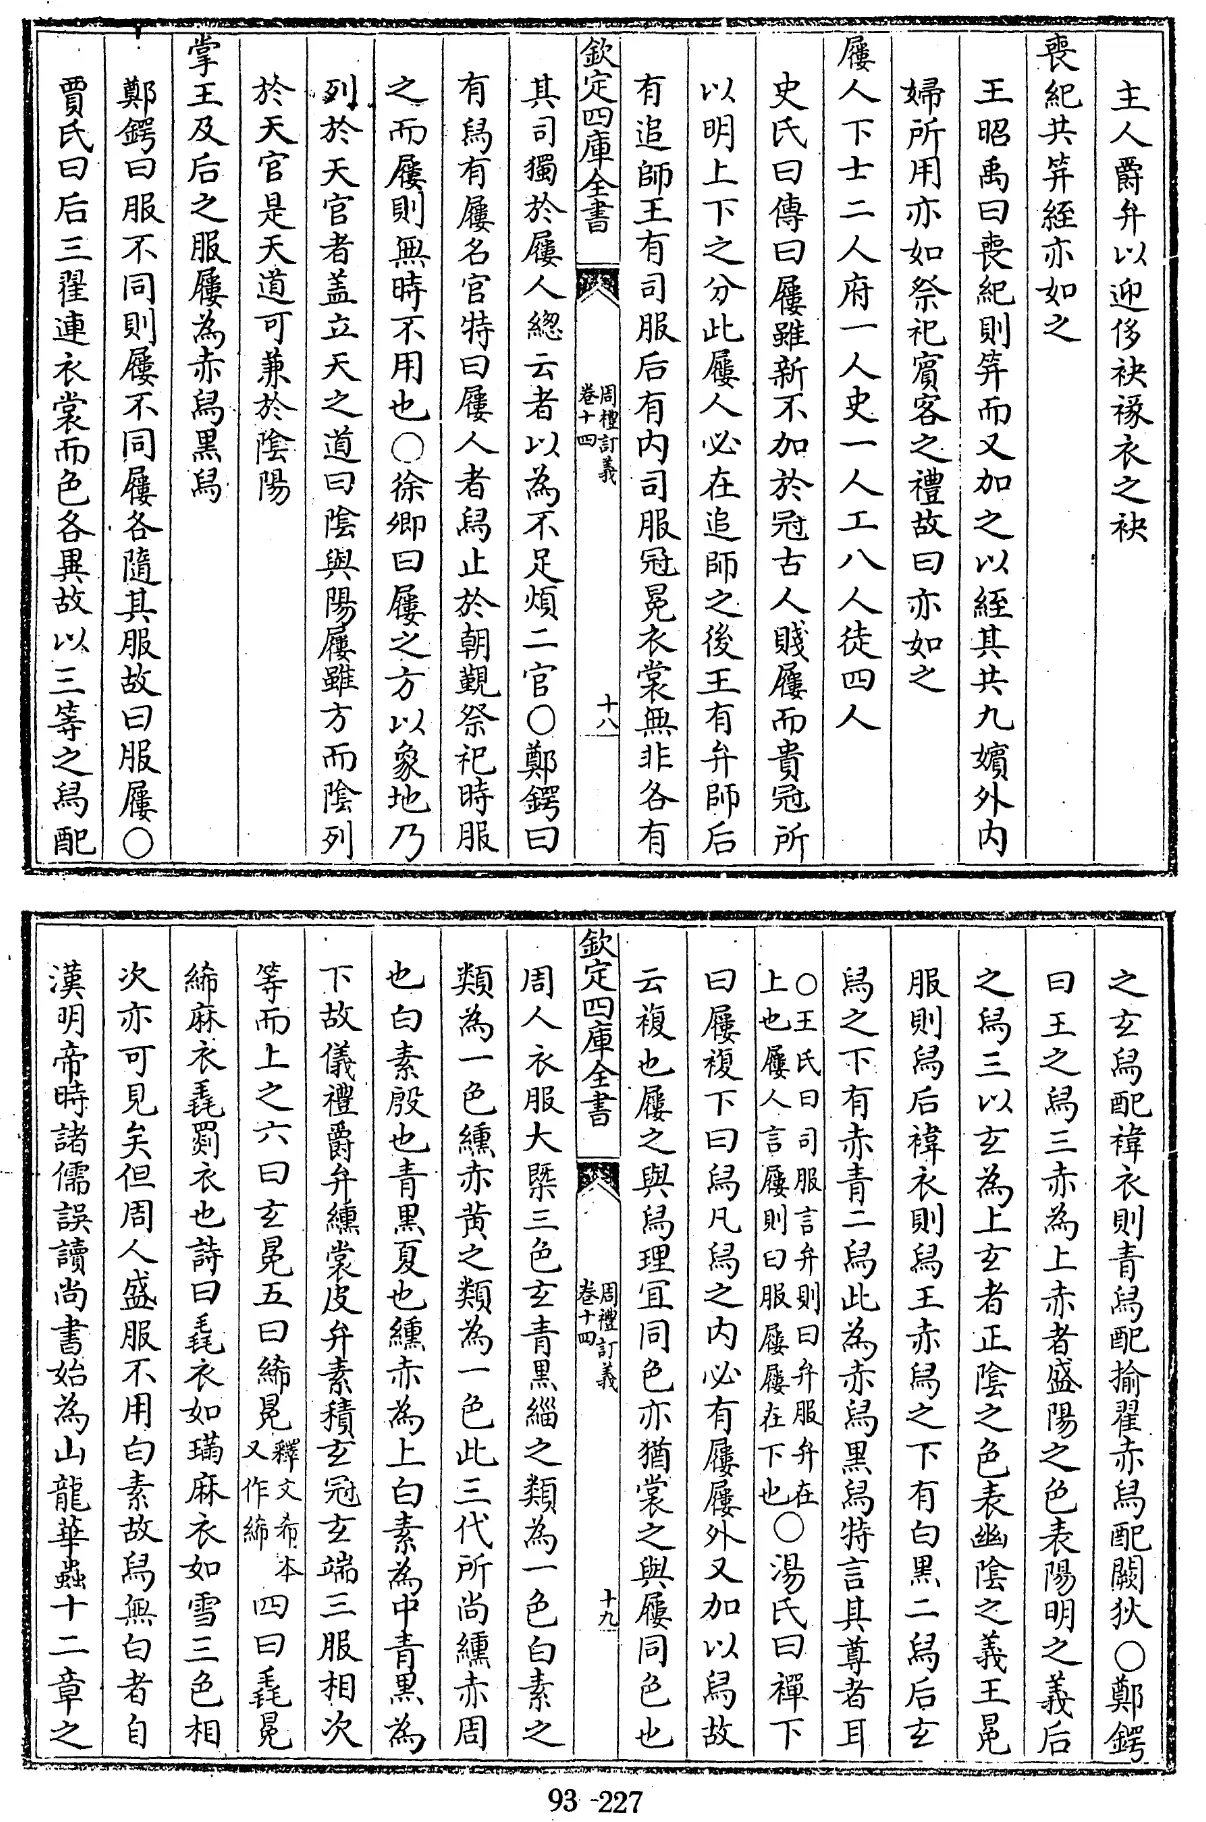 主人爵弁以迎侈袂褖衣之袂
喪紀共筓絰亦如之
王昭禹曰喪紀則筓而又加之以絰其共九嬪外内
婦所用亦如祭祀賔客之禮故曰亦如之
屨人下士二人府一人史一人工八人徒四人
史氏曰傳曰屨雖新不加於冠古人賤屨而貴冠所
以明上下之分此屨人必在追師之後王有弁師后
有追師王有司服后有内司服冠冕衣裳無非各有
欽定四庫全書
周禮訂義
卷十四
十八
其司獨於屨人總云者以為不足煩二官○鄭鍔曰
有舄有屨名官特曰屨人者舄止於朝覲祭祀時服
之而屨則無時不用也○徐卿曰屨之方以象地乃
列於天官者盖立天之道曰陰與陽屨雖方而陰列
於天官是天道可兼於陰陽
掌王及后之服屨為赤舄黒舄
鄭鍔曰服不同則屨不同屨各隨其服故曰服屨○
賈氏曰后三翟連衣裳而色各異故以三等之舄配
之玄舄配褘衣則青舄配揄翟赤舄配闕狄○鄭鍔
曰王之舄三赤為上赤者盛陽之色表陽明之義后
之舄三以玄為上玄者正陰之色表幽陰之義王冕
服則舄后褘衣則舄王赤舄之下有白黒二舄后玄
舄之下有赤青二舄此為赤舄黒舄特言其尊者耳
○王氏曰司服言弁則曰弁服弁在
上也屨人言屨則曰服屨屨在下也○湯氏曰襌下
曰屨複下曰舄凡舄之内必有屨屨外又加以舄故
云複也屨之與舄理宜同色亦猶裳之與屨同色也
欽定四庫全書
周禮訂義
卷十四
十九
周人衣服大槩三色玄青黒緇之類為一色白素之
類為一色纁赤黄之類為一色此三代所尚纁赤周
也白素殷也青黒夏也纁赤為上白素為中青黒為
下故儀禮爵弁纁裳皮弁素積玄冠玄端三服相次
等而上之六曰玄冕五曰絺冕釋文希本
又作絺四曰毳冕
絺麻衣毳罽衣也詩曰毳衣如璊麻衣如雪三色相
次亦可見矣但周人盛服不用白素故舄無白者自
漢明帝時諸儒誤讀尚書始為山龍華蟲十二章之
93-227